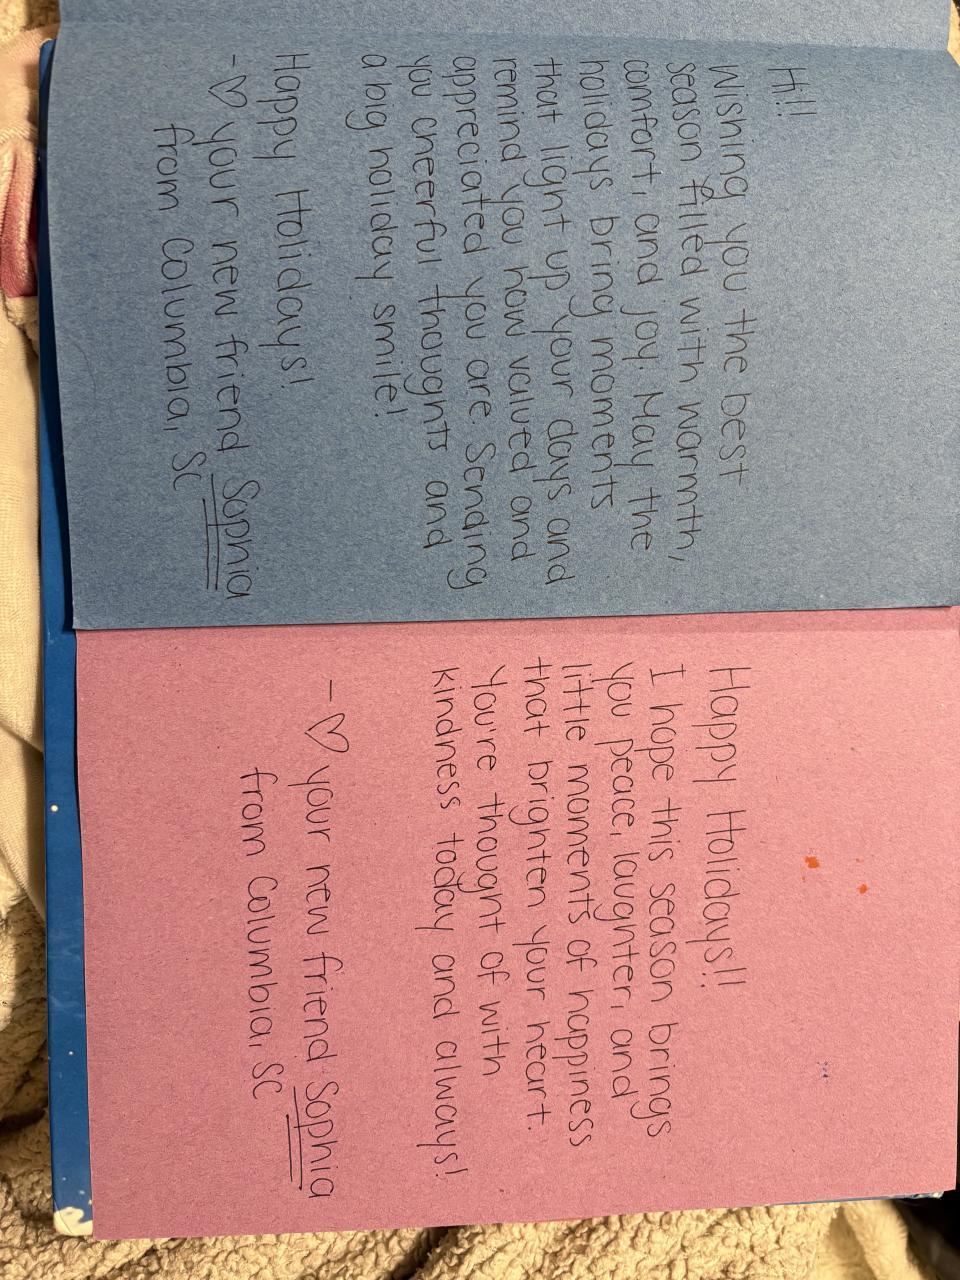 Hi!!
Wishing you the best
season filled with warmth,
comfort, and joy. May the
holidays bring moments
that light up your days and
remind you how valued and
appreciated you are. Sending
you cheerful thoughts and
a big holiday smile!
Happy Holidays!
- ♡ your new friend Sophia
from Columbia, SC
Happy Holidays!!
I hope this season brings
you peace, laughter, and
little moments of happiness
that brighten your heart.
You're thought of with
kindness today and always!
- ♡ your new friend Sophia
from Columbia, SC